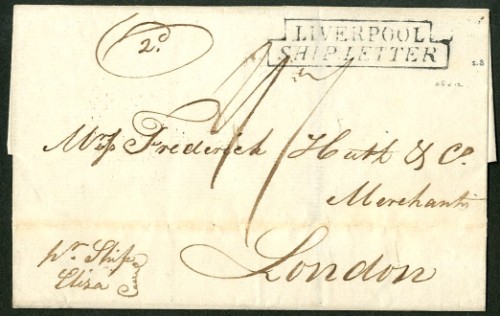 2d
LIVERPOOL
SHIP LETTER
Messrs Frederick Huth & Co
Merchants
London
pr Ship
Eliza